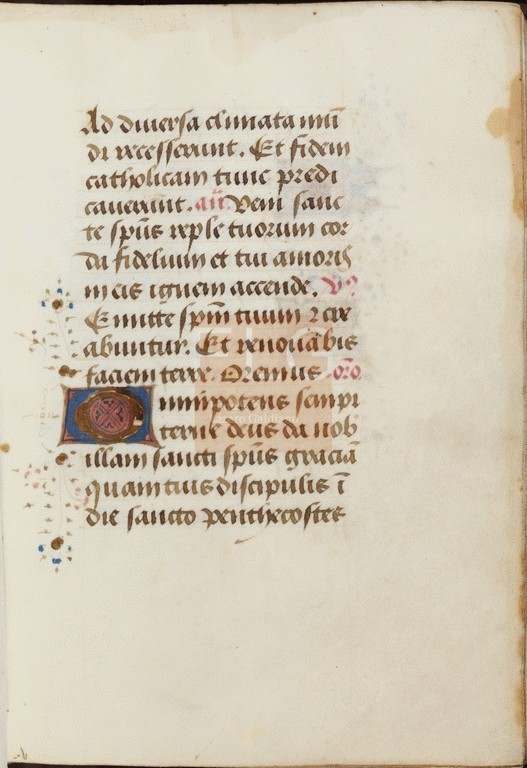 Ad diversa climata mūi
di recesserunt. Et fidem
catholicam tunc predi
caverunt. añ. Veni sanc
te spūs reple tuorum cor
da fidelium et tui amoris
in eis ignem accende. V̄.
Emitte spm̄ tuum ⁊ cre
abuntur. Et renovabis
faciem terre. Oremus oro.
Omnipotens sempi
terne deus da nob
illam sancti spūs graciā
quam tuis discipulis ī
die sancto penthecostes